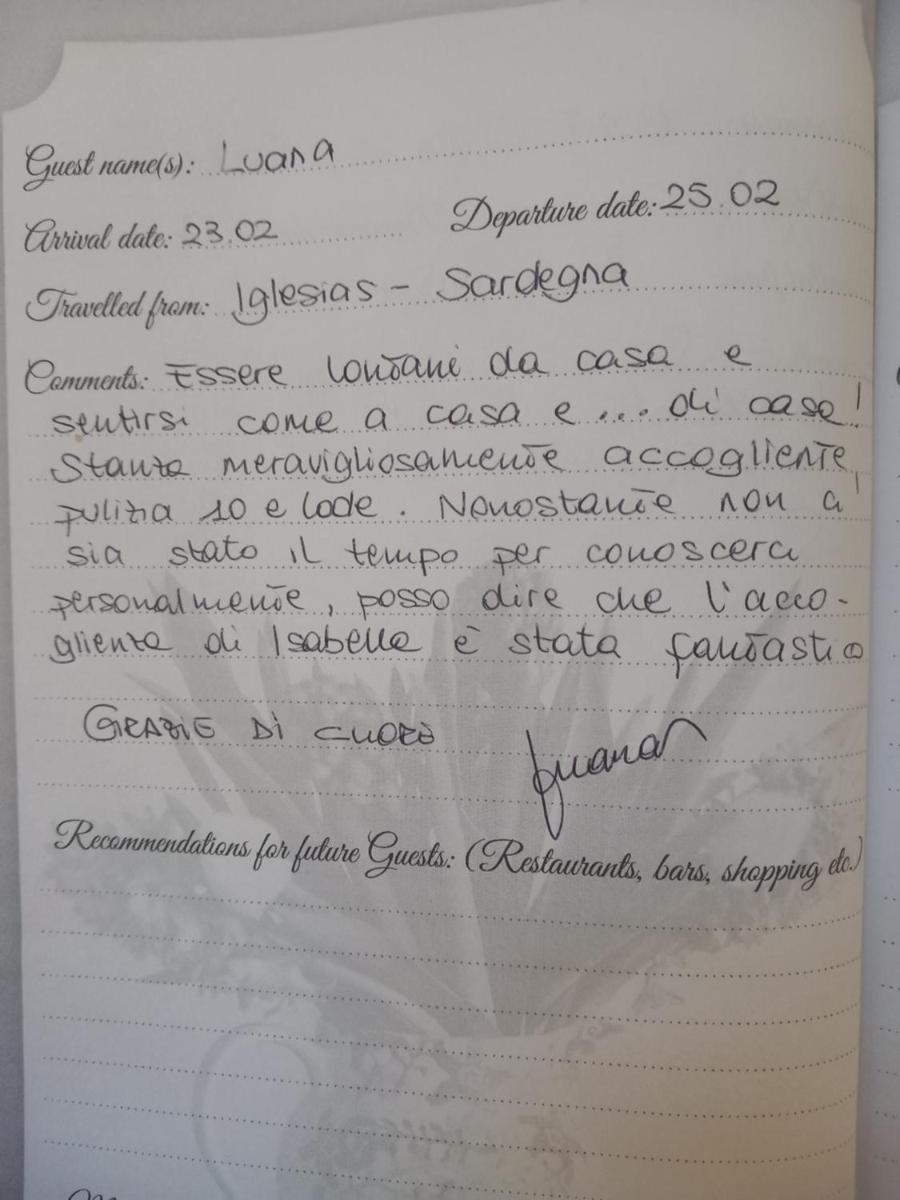 Guest name(s): Luana
Arrival date: 23.02 Departure date: 25.02
Travelled from: Iglesias - Sardegna
Comments: Essere lontani da casa e
sentirsi come a casa e .... di casa!
Stanza meravigliosamente accogliente,
pulizia 10 e lode. Nonostante non ci
sia stato il tempo per conoscerci
personalmente, posso dire che l'acco-
glienza di Isabella è stata fantastica
GRAZIE DI CUORE Luana
Recommendations for future Guests: (Restaurants, bars, shopping etc.)